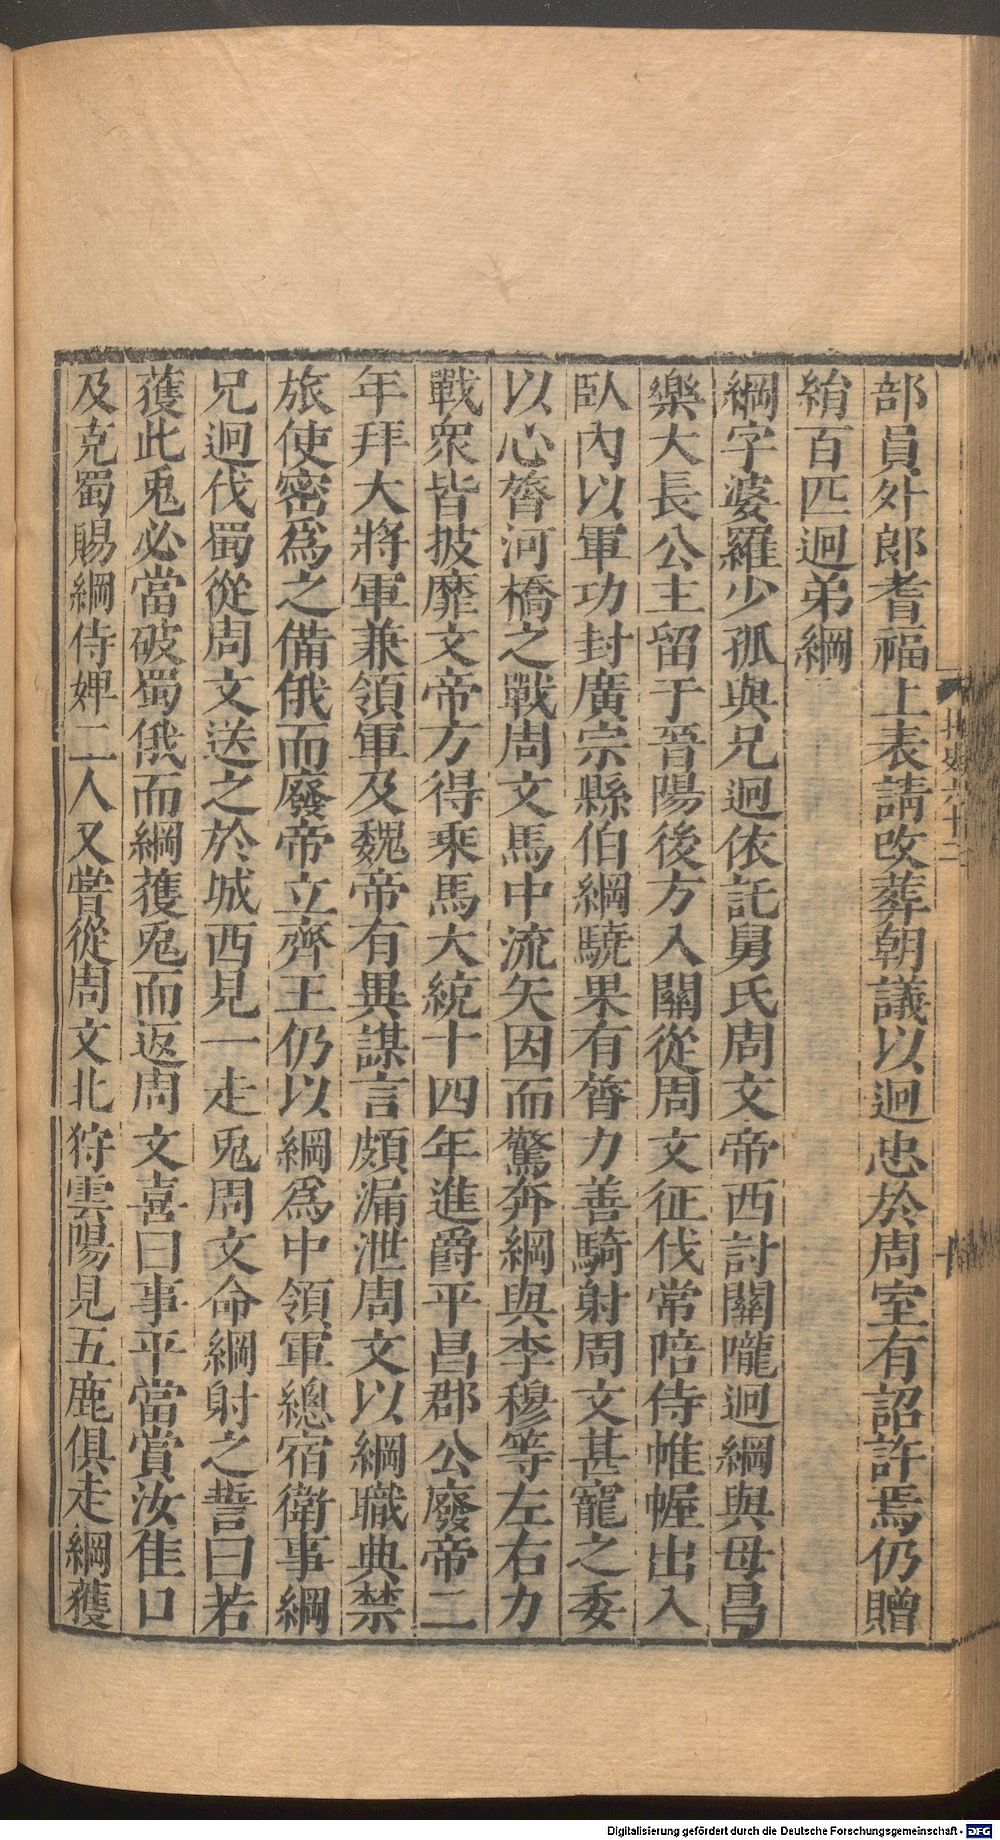 部員外郎耆福上表請改葬朝議以迥忠於周室有詔許焉仍贈
絹百匹迥弟綱
綱字婆羅少孤與兄迥依託舅氏周文帝西討關隴迥綱與母昌
樂大長公主留于晉陽後方入關從周文征伐常陪侍帷幄出入
臥內以軍功封廣宗縣伯綱驍果有膂力善騎射周文甚寵之委
以心膂河橋之戰周文馬中流矢因而驚奔綱與李穆等左右力
戰眾皆披靡文帝方得乘馬大統十四年進爵平昌郡公廢帝二
年拜大將軍兼領軍及魏帝有異謀言頗漏泄周文以綱職典禁
旅使密爲之備俄而廢帝立齊王仍以綱爲中領軍總宿衛事綱
兄迥伐蜀從周文送之於城西見一走兎周文命綱射之誓曰若
獲此兎必當破蜀俄而綱獲兎而返周文喜曰事平當賞汝佳口
及克蜀賜綱侍婢二人又嘗從周文北狩雲陽見五鹿俱走綱獲
北史六十二
十
Digitalisierung gefördert durch die Deutsche Forschungsgemeinschaft - DFG